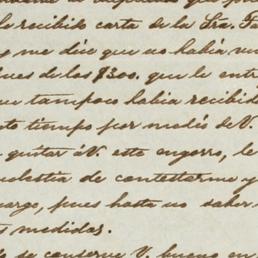 he recibido carta de la Sra. Fa
y me dice que no habia
pues de los $300. que le entre
que tampoco habia recibido
tiempo por medio de V.
quitar á V. este engorro, le
molestia de contestarme y
cargo, pues hasta no saber
medidas.
se conserve V. bueno en